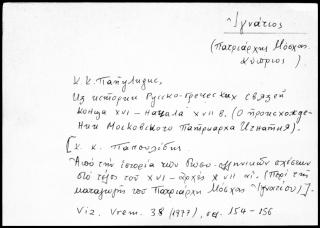 Ἰγνάτιος
(Πατριάρχης Μόσχας
Κύπριος)
К. К. Папулидис,
Из истории русско-греческих связей
конца XVI - начала XVII в. (О происхожде-
нии Московского Патриарха Игнатия).
[К. К. Παπουλίδης
Ἀπό τήν ἱστορία τῶν ρωσο-ἑλληνικῶν σχέσεων
στό τέλος τοῦ XVI - ἀρχές XVII αἰ. (Περί τῆς
καταγωγῆς τοῦ Πατριάρχη Μόσχας Ἰγνατίου)].
Viz. Vrem. 38 (1977), σελ. 154-156